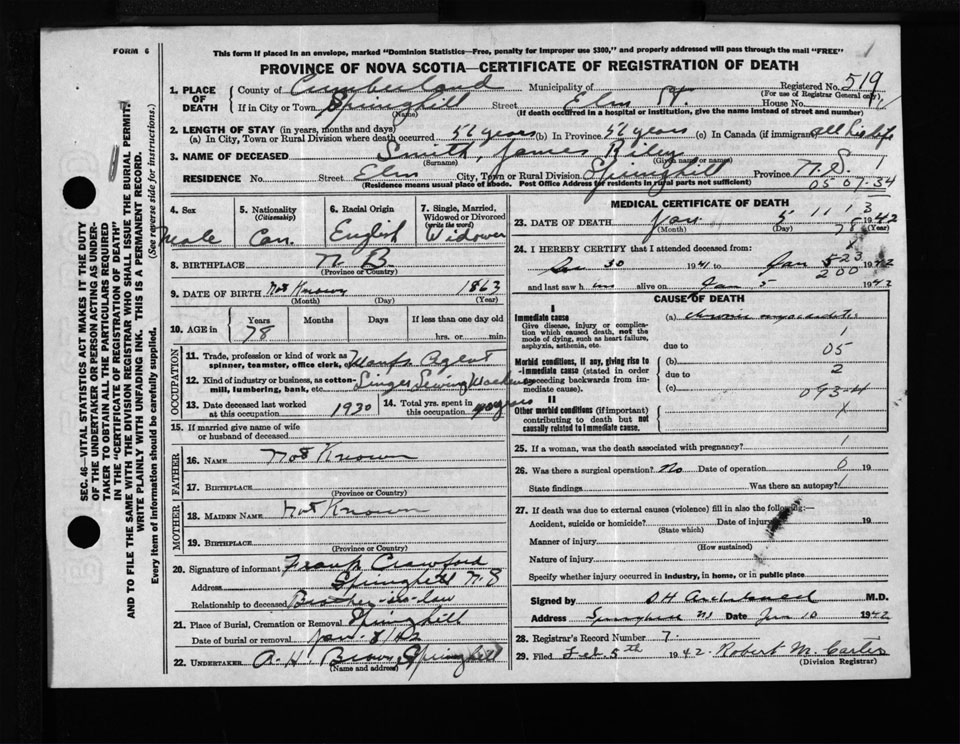 FORM 6
This form if placed in an envelope, marked "Dominion Statistics—Free, penalty for improper use $300," and properly addressed will pass through the mail "FREE"
1
PROVINCE OF NOVA SCOTIA—CERTIFICATE OF REGISTRATION OF DEATH
Registered No. 519
(For use of Registrar General only)
1. PLACE OF DEATH County of Cumberland Municipality of
If in City or Town Springhill Street Elm St. House No.
(Name) (If death occurred in a hospital or institution, give the name instead of street and number)
2. LENGTH OF STAY (in years, months and days)
(a) In City, Town or Rural Division where death occurred 56 years (b) In Province 56 years (c) In Canada (if immigrant) all his life
3. NAME OF DECEASED Smith, James Riley
(Surname) (Given name or names)
RESIDENCE No. Street Elm City, Town or Rural Division Springhill Province N.S. 1
(Residence means usual place of abode. Post Office Address for residents in rural parts not sufficient) 05 07-34
4. Sex Male
5. Nationality (Citizenship) Can.
6. Racial Origin English
7. Single, Married, Widowed or Divorced (write the word) Widower
8. BIRTHPLACE N. B.
(Province or Country)
9. DATE OF BIRTH Not Known 1863
(Month) (Day) (Year)
10. AGE in Years Months Days If less than one day old
78 hrs. or min.
OCCUPATION
11. Trade, profession or kind of work as spinner, teamster, office clerk, etc. Manfs Agent
12. Kind of industry or business, as cotton-mill, lumbering, bank, etc. Singer Sewing Machine
13. Date deceased last worked at this occupation 1930
14. Total yrs. spent in this occupation 40 years
15. If married give name of wife or husband of deceased
FATHER
16. NAME Not Known
17. BIRTHPLACE
(Province or Country)
MOTHER
18. MAIDEN NAME Not Known
19. BIRTHPLACE
(Province or Country)
20. Signature of informant Frank Crawford
Address Springhill N.S
Relationship to deceased Brother-in-law
21. Place of Burial, Cremation or Removal Springhill
Date of burial or removal Jan. 8/42
22. UNDERTAKER A. H. Brown Springhill
(Name and address)
MEDICAL CERTIFICATE OF DEATH
23. DATE OF DEATH Jan. 5 1942
(Month) (Day) (Year)
11 1 3
78
24. I HEREBY CERTIFY that I attended deceased from:
30 1941 to Jan 5 1942
523
200
and last saw him alive on Jan 5 1942
CAUSE OF DEATH
I
Immediate cause
Give disease, injury or complication which caused death, not the mode of dying, such as heart failure, asphyxia, asthenia, etc.
(a) chronic myocarditis
1
due to 05
Morbid conditions, if any, giving rise to immediate cause (stated in order proceeding backwards from immediate cause).
(b)
due to 2
(c) 093-4
II
Other morbid conditions (if important) contributing to death but not causally related to immediate cause.
25. If a woman, was the death associated with pregnancy? 1
26. Was there a surgical operation? No Date of operation 0 19
State findings Was there an autopsy? 1
27. If death was due to external causes (violence) fill in also the following:—
Accident, suicide or homicide? Date of injury 19
(State which)
Manner of injury
(How sustained)
Nature of injury
Specify whether injury occurred in industry, in home, or in public place
Signed by D H Archibald M.D.
Address Springhill NS Date Jan 10 1942
28. Registrar's Record Number 7.
29. Filed Feb 5th 1942 Robert M. Carter
(Division Registrar)
SEC. 46—VITAL STATISTICS ACT MAKES IT THE DUTY
OF THE UNDERTAKER OR PERSON ACTING AS UNDERTAKER TO OBTAIN ALL THE PARTICULARS REQUIRED
IN THE "CERTIFICATE OF REGISTRATION OF DEATH"
AND TO FILE THE SAME WITH THE DIVISION REGISTRAR WHO SHALL ISSUE THE BURIAL PERMIT.
WRITE PLAINLY WITH UNFADING INK. THIS IS A PERMANENT RECORD.
Every item of information should be carefully supplied. (See reverse side for instructions.)